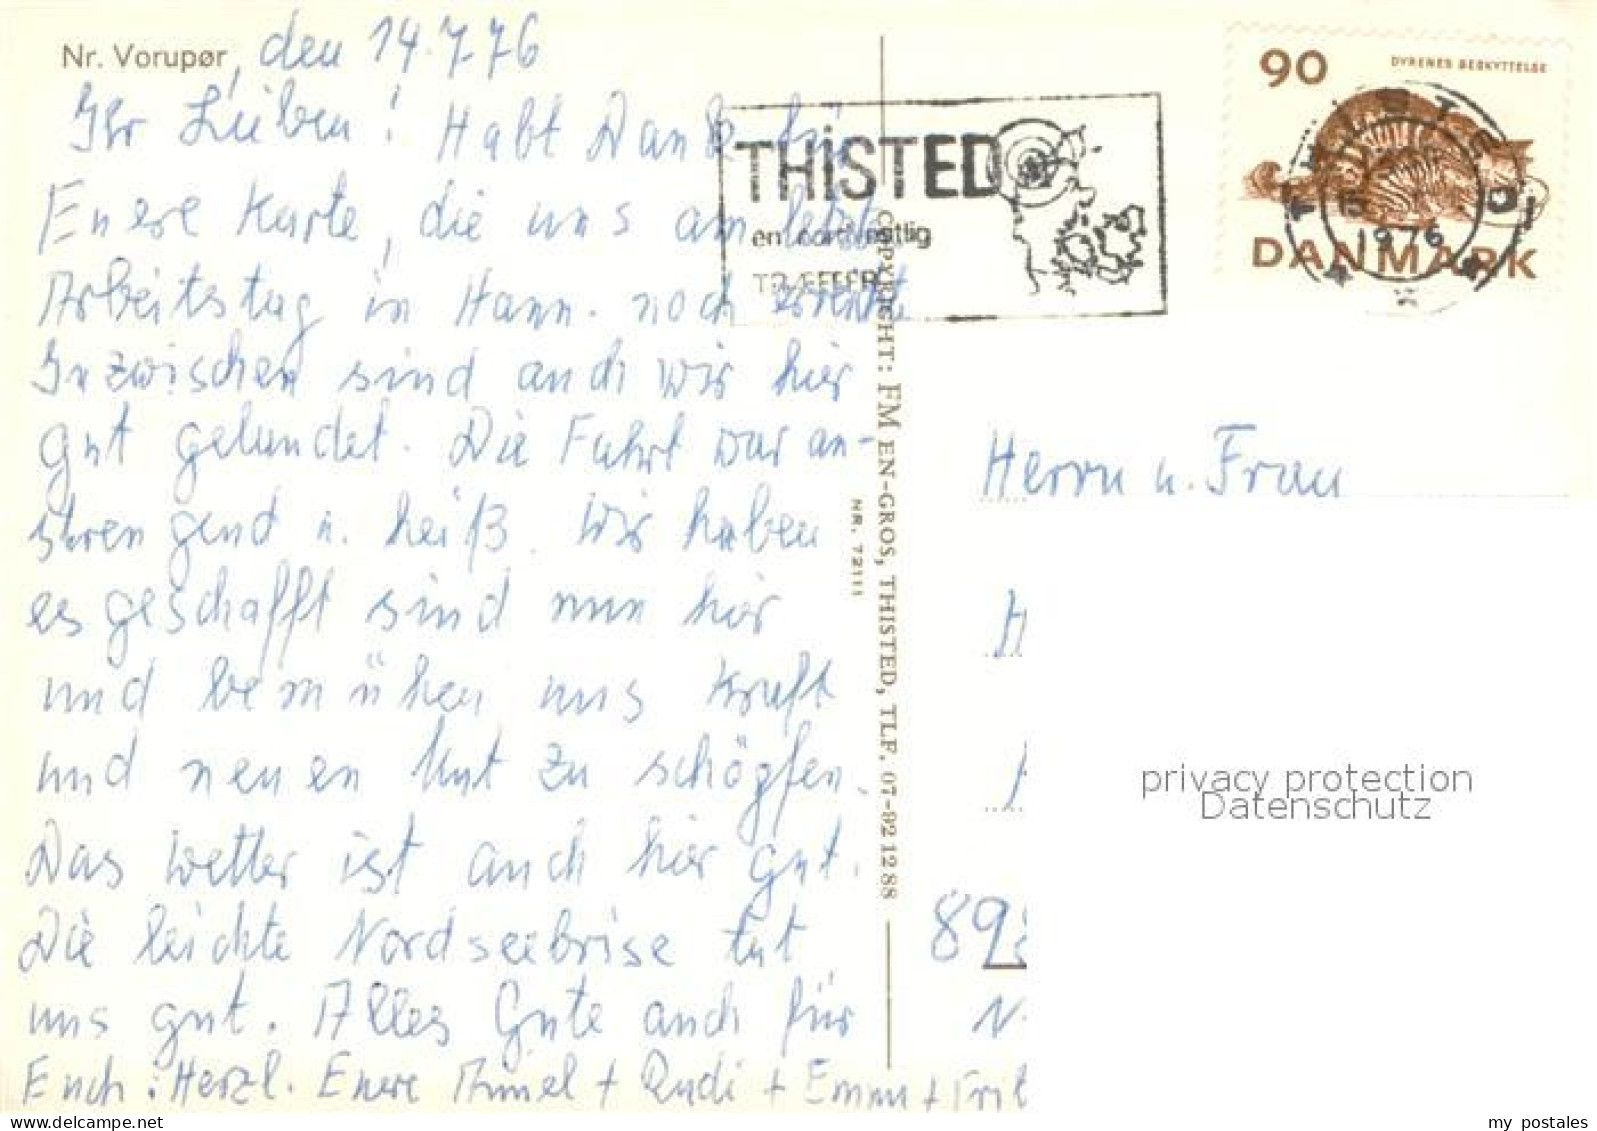 Nr. Vorupør, den 14.7.76
Ihr Lieben! Habt Dank für
Euere Karte, die uns am letzt.
Arbeitstag in Hann. noch erreichte
Inzwischen sind auch wir hier
gut gelandet. Die Fahrt war an-
strengend u. heiß. Wir haben
es geschafft sind nun hier
und bemühen uns Kraft
und neuen Mut zu schöpfen.
Das Wetter ist auch hier gut.
Die leichte Nordseebrise tut
uns gut. Alles Gute auch für
Euch: Herzl. Euere + Rudi + Emmi +
THISTED
TRÆFFER
COPYRIGHT: FM EN-GROS, THISTED, TLF. 07-92 12 88
NR. 72111
90
DYRENES BESKYTTELSE
DANMARK
THISTED
1976
Herrn u. Frau
H
89
N
privacy protection
Datenschutz
my postales